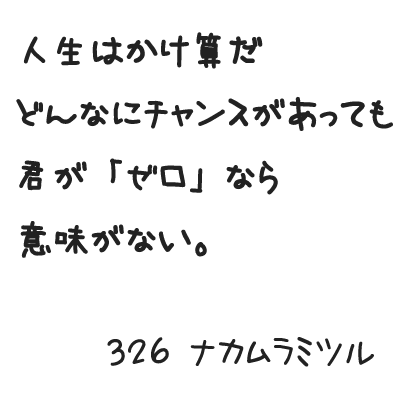 人生はかけ算だ
どんなにチャンスがあっても
君が「ゼロ」なら
意味がない。
326 ナカムラミツル